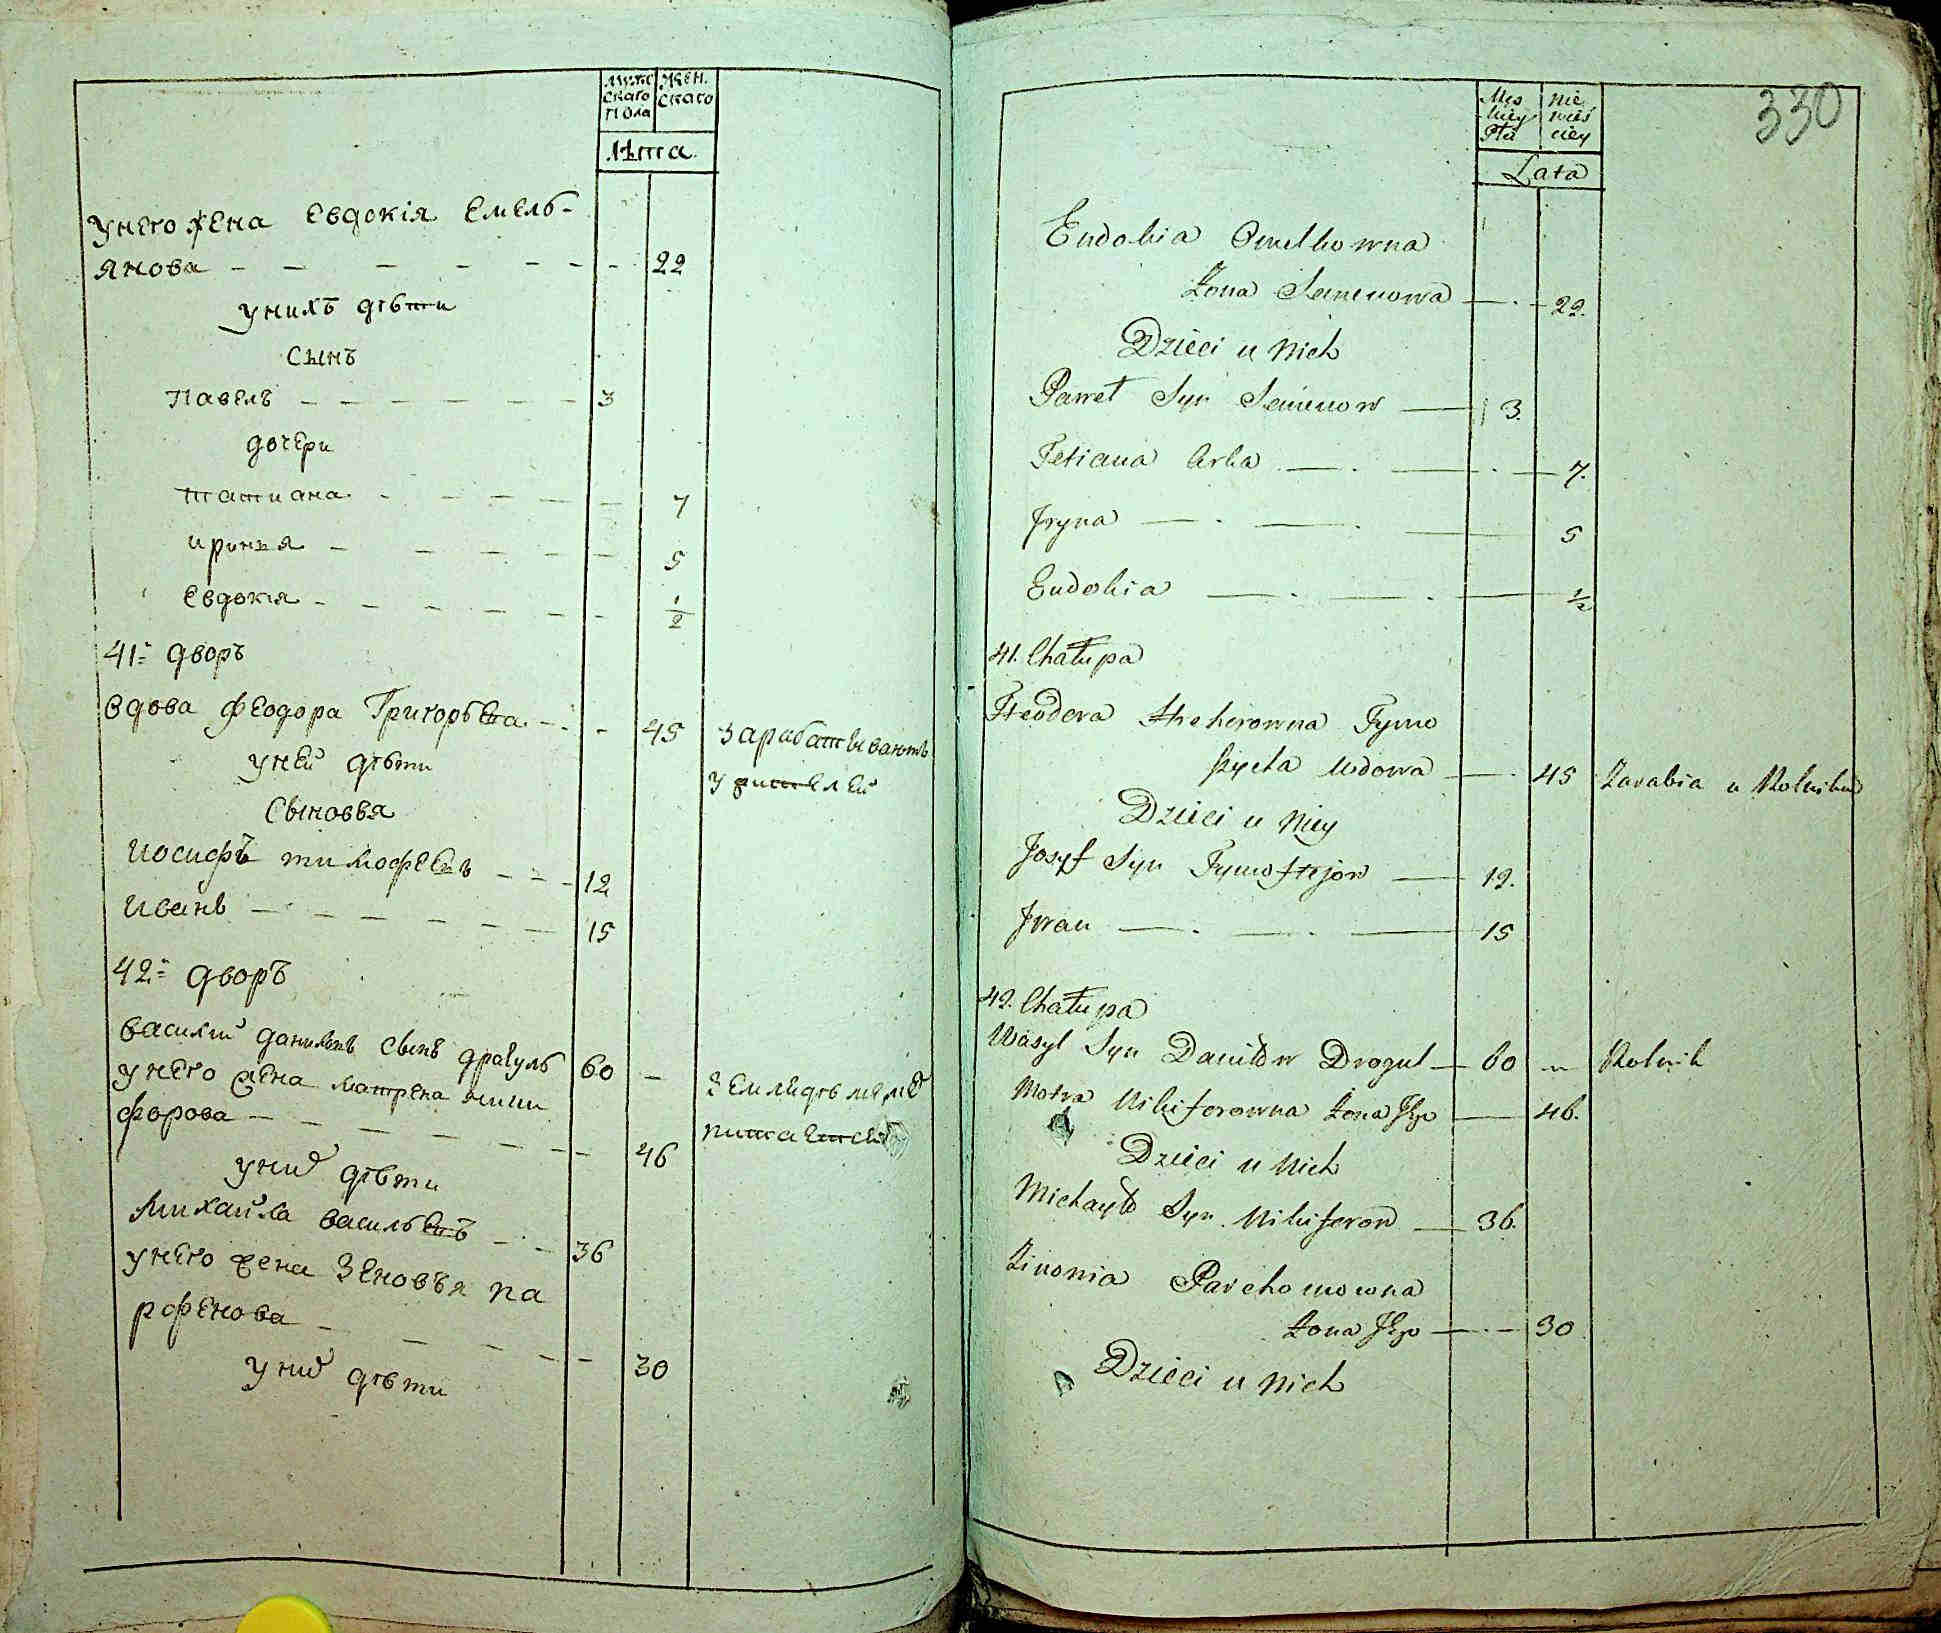 мужескаго пола
женскаго
лѣта
у него жена Евдокія Емель-
янова 22
у нихъ дѣти
сынъ
Павелъ 3
дочери
татиана 7
иринья 5
Евдокія 1/2
41й дворъ
вдова феодора Григорьева 45 зарабатываютъ
у ней дѣти у жителей
сыновья
иосифъ тимофеевъ 12
иванъ 15
42й дворъ
василий данилевъ сынъ драгуль 60 –
у него жена матрена ники
форова 46 питается
у них дѣти
михайла васильевъ 36
у него жена Зеновья па
рфенова 30
у них дѣти
330
Męskiey Płci
Niewieściey
Lata
Eudokia Omelkowna
Żona Semenowa 22.
Dzieci u Nich
Paweł Syn Semenow 3.
Tetiana Corka 7.
Jryna 5
Eudokia 1/2
41. Chałupa
Fteodora Hrehorowna Tymo
Wdowa 45 Zarabia u Rolnikow
Dzieci u Niey
Josyf Syn Tymoftejow 12.
Jwan 15
42. Chałupa
Wasyl Syn Daniłow Drogul 60 – Rolnik
Motra Nikiforowna Żona Jego 46.
Dzieci u Nich
Michayło Syn Nikiforow 36.
Zinowia Parchomowna
Żona Jego 30
Dzieci u Nich